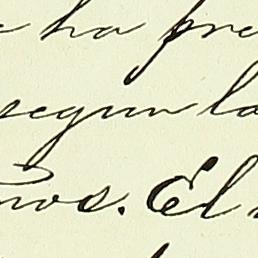 e ha pre
segun la
nos. El